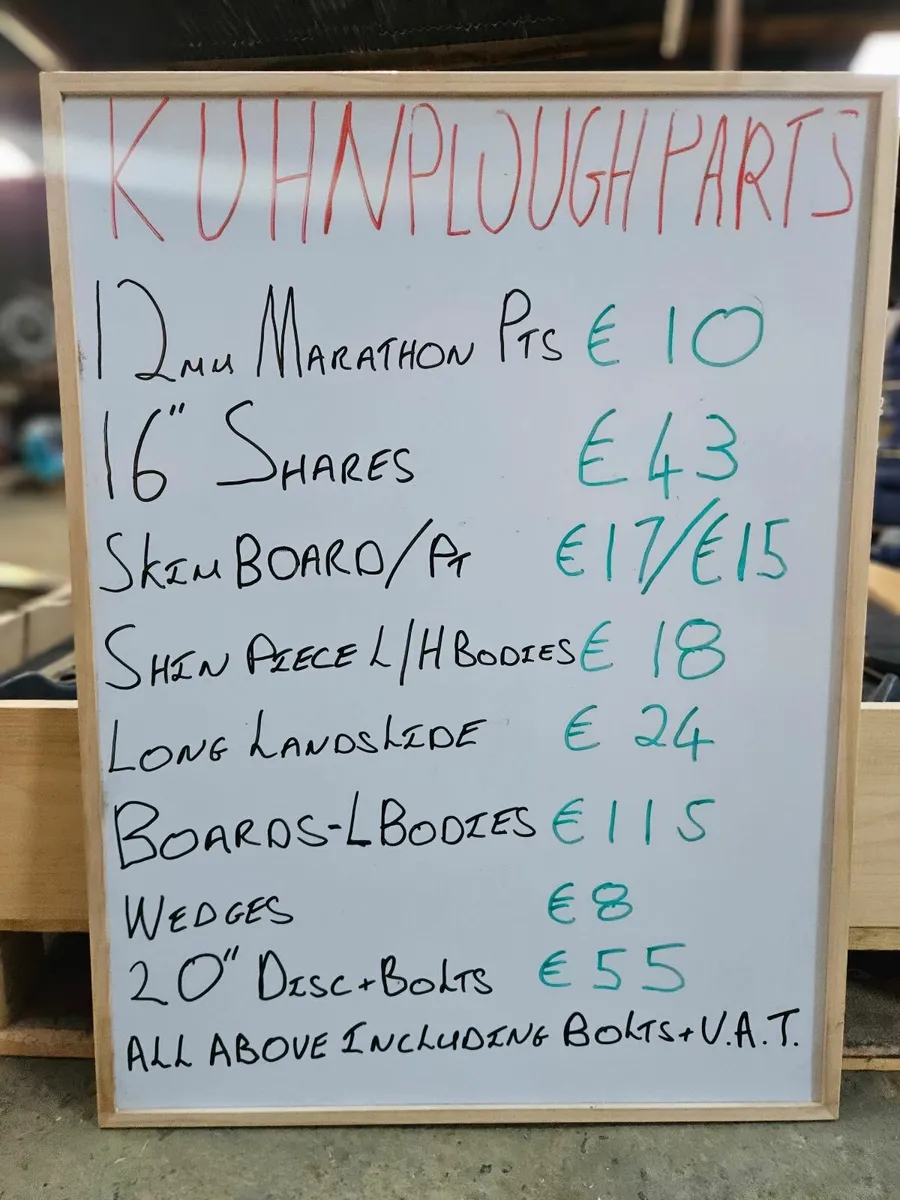 KUHN PLOUGH PARTS
12mm MARATHON PTS € 10
16" SHARES € 43
SKIM BOARD/PT €17/€15
SHIN PIECE L/H BODIES € 18
LONG LANDSLIDE € 24
BOARDS-L BODIES € 115
WEDGES € 8
20" DISC+BOLTS € 55
ALL ABOVE INCLUDING BOLTS+V.A.T.